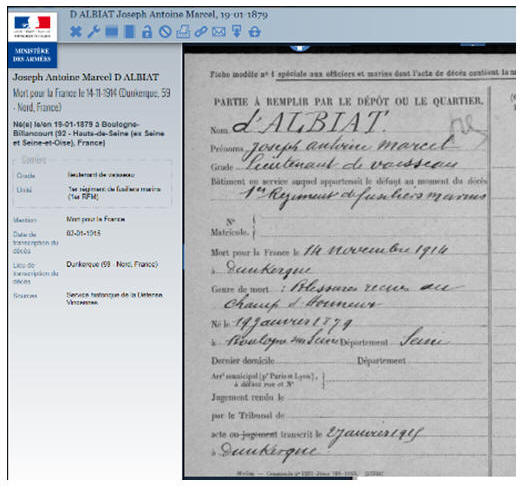 D ALBIAT Joseph Antoine Marcel, 19-01-1879
MINISTÈRE
DES ARMÉES
Joseph Antoine Marcel D ALBIAT
Mort pour la France le 14-11-1914 (Dunkerque, 59
- Nord, France)
Né(e) le/en 19-01-1879 à Boulogne-
Billancourt (92 - Hauts-de-Seine (ex Seine
et Seine-et-Oise), France)
Carrière
Grade lieutenant de vaisseau
Unité 1er régiment de fusiliers marins
(1er RFM)
Mention Mort pour la France
Date de
transcription du
décès
02-01-1915
Lieu de
transcription du
décès
Dunkerque (59 - Nord, France)
Sources Service historique de la Défense,
Vincennes
Fiche modèle n° 1 spéciale aux officiers et marins dont l'acte de décès contient la m
PARTIE À REMPLIR PAR LE DÉPÔT OU LE QUARTIER.
Nom d'ALBIAT.
Prénoms Joseph Antoine Marcel
Grade Lieutenant de vaisseau
Bâtiment ou service auquel appartenait le défunt au moment du décès
1er Régiment de fusiliers marins
N°
Matricule.
Mort pour la France le 14 novembre 1914
à Dunkerque
Genre de mort : Blessures reçues au
champ d'honneur
Né le 19 janvier 1879
à Boulogne sur Seine Département Seine
Dernier domicile Département
Arrt municipal (pr Paris et Lyon),
à défaut rue et N°
Jugement rendu le
par le Tribunal de
acte ou jugement transcrit le 2 janvier 1915
à Dunkerque